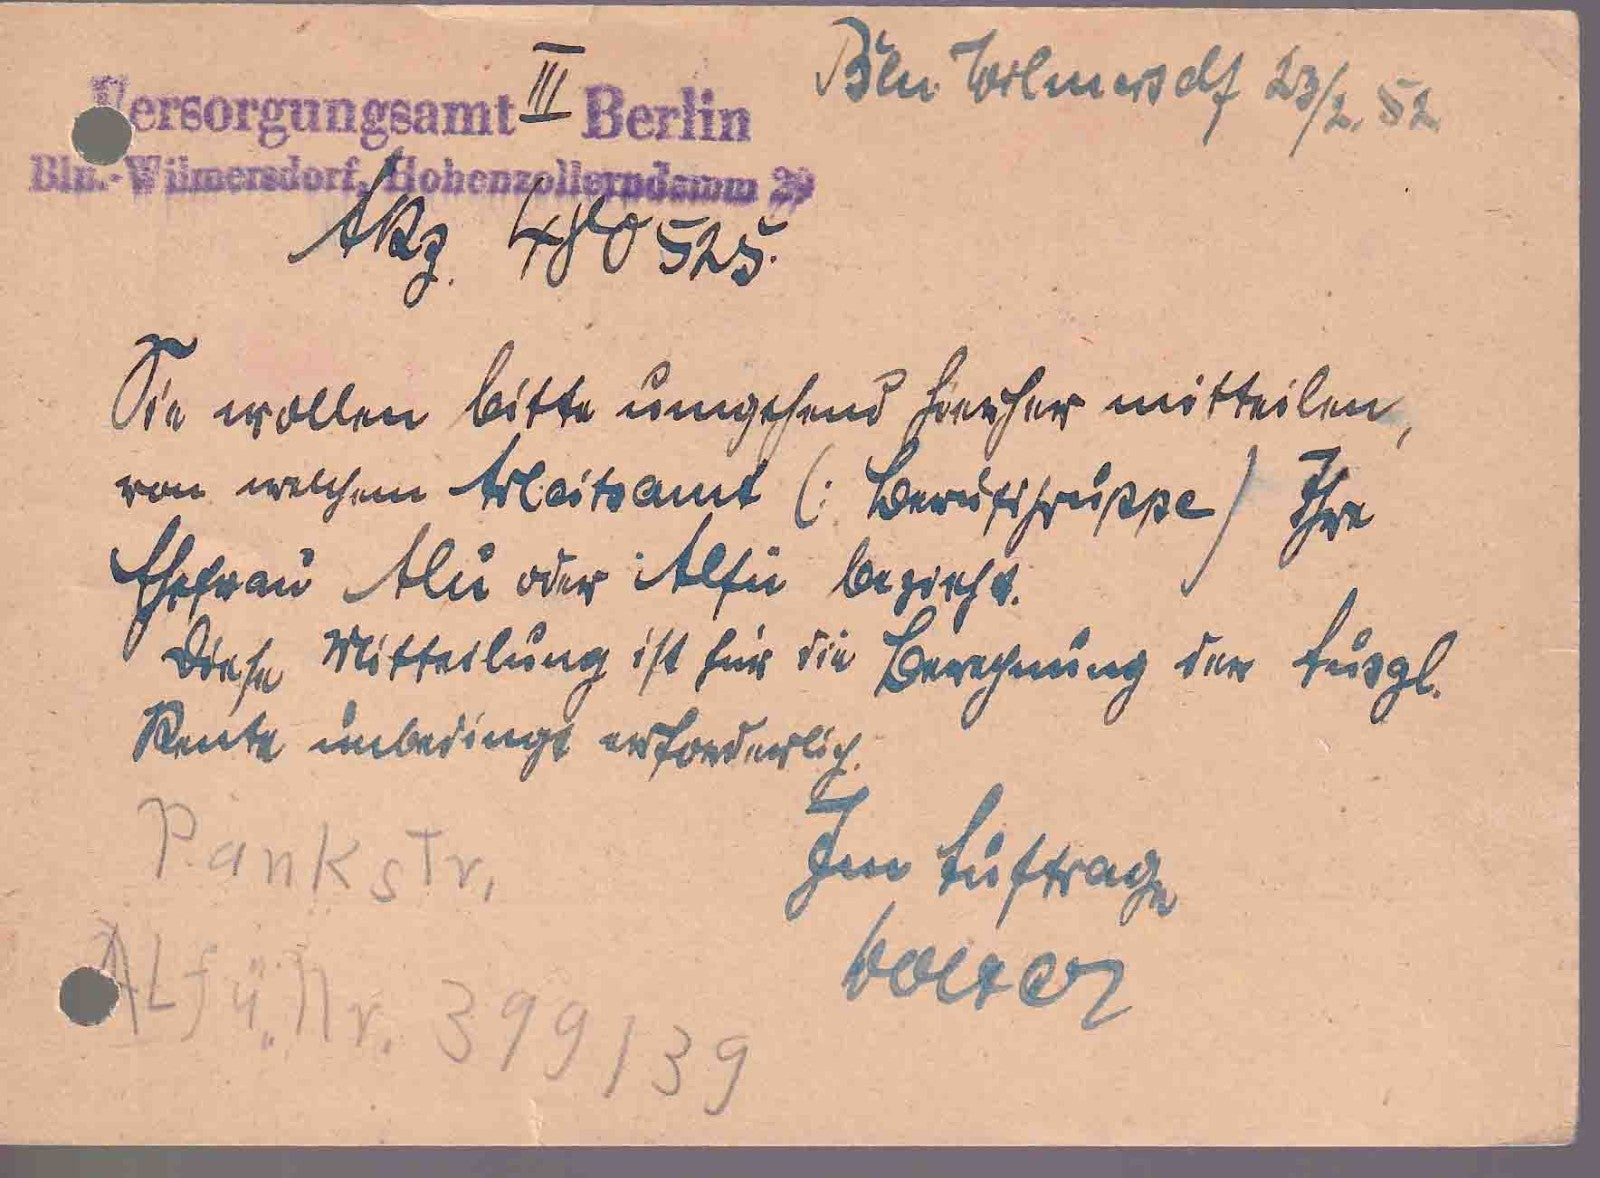 Versorgungsamt III Berlin
Bln.-Wilmersdorf, Hohenzollerndamm 29
Bln. Wilmersdf 23/2. 52
Akz. 480 525.
Sie wollen bitte umgehend hierher mitteilen,
von welchem Arbeitsamt (: Berufsgruppe) Ihre
Ehefrau Alu oder Alfu bezieht.
Diese Mitteilung ist für die Berechnung der Ausgl.
Rente unbedingt erforderlich.
Im Auftrage
Pankstr.
Alfü. Nr. 399139